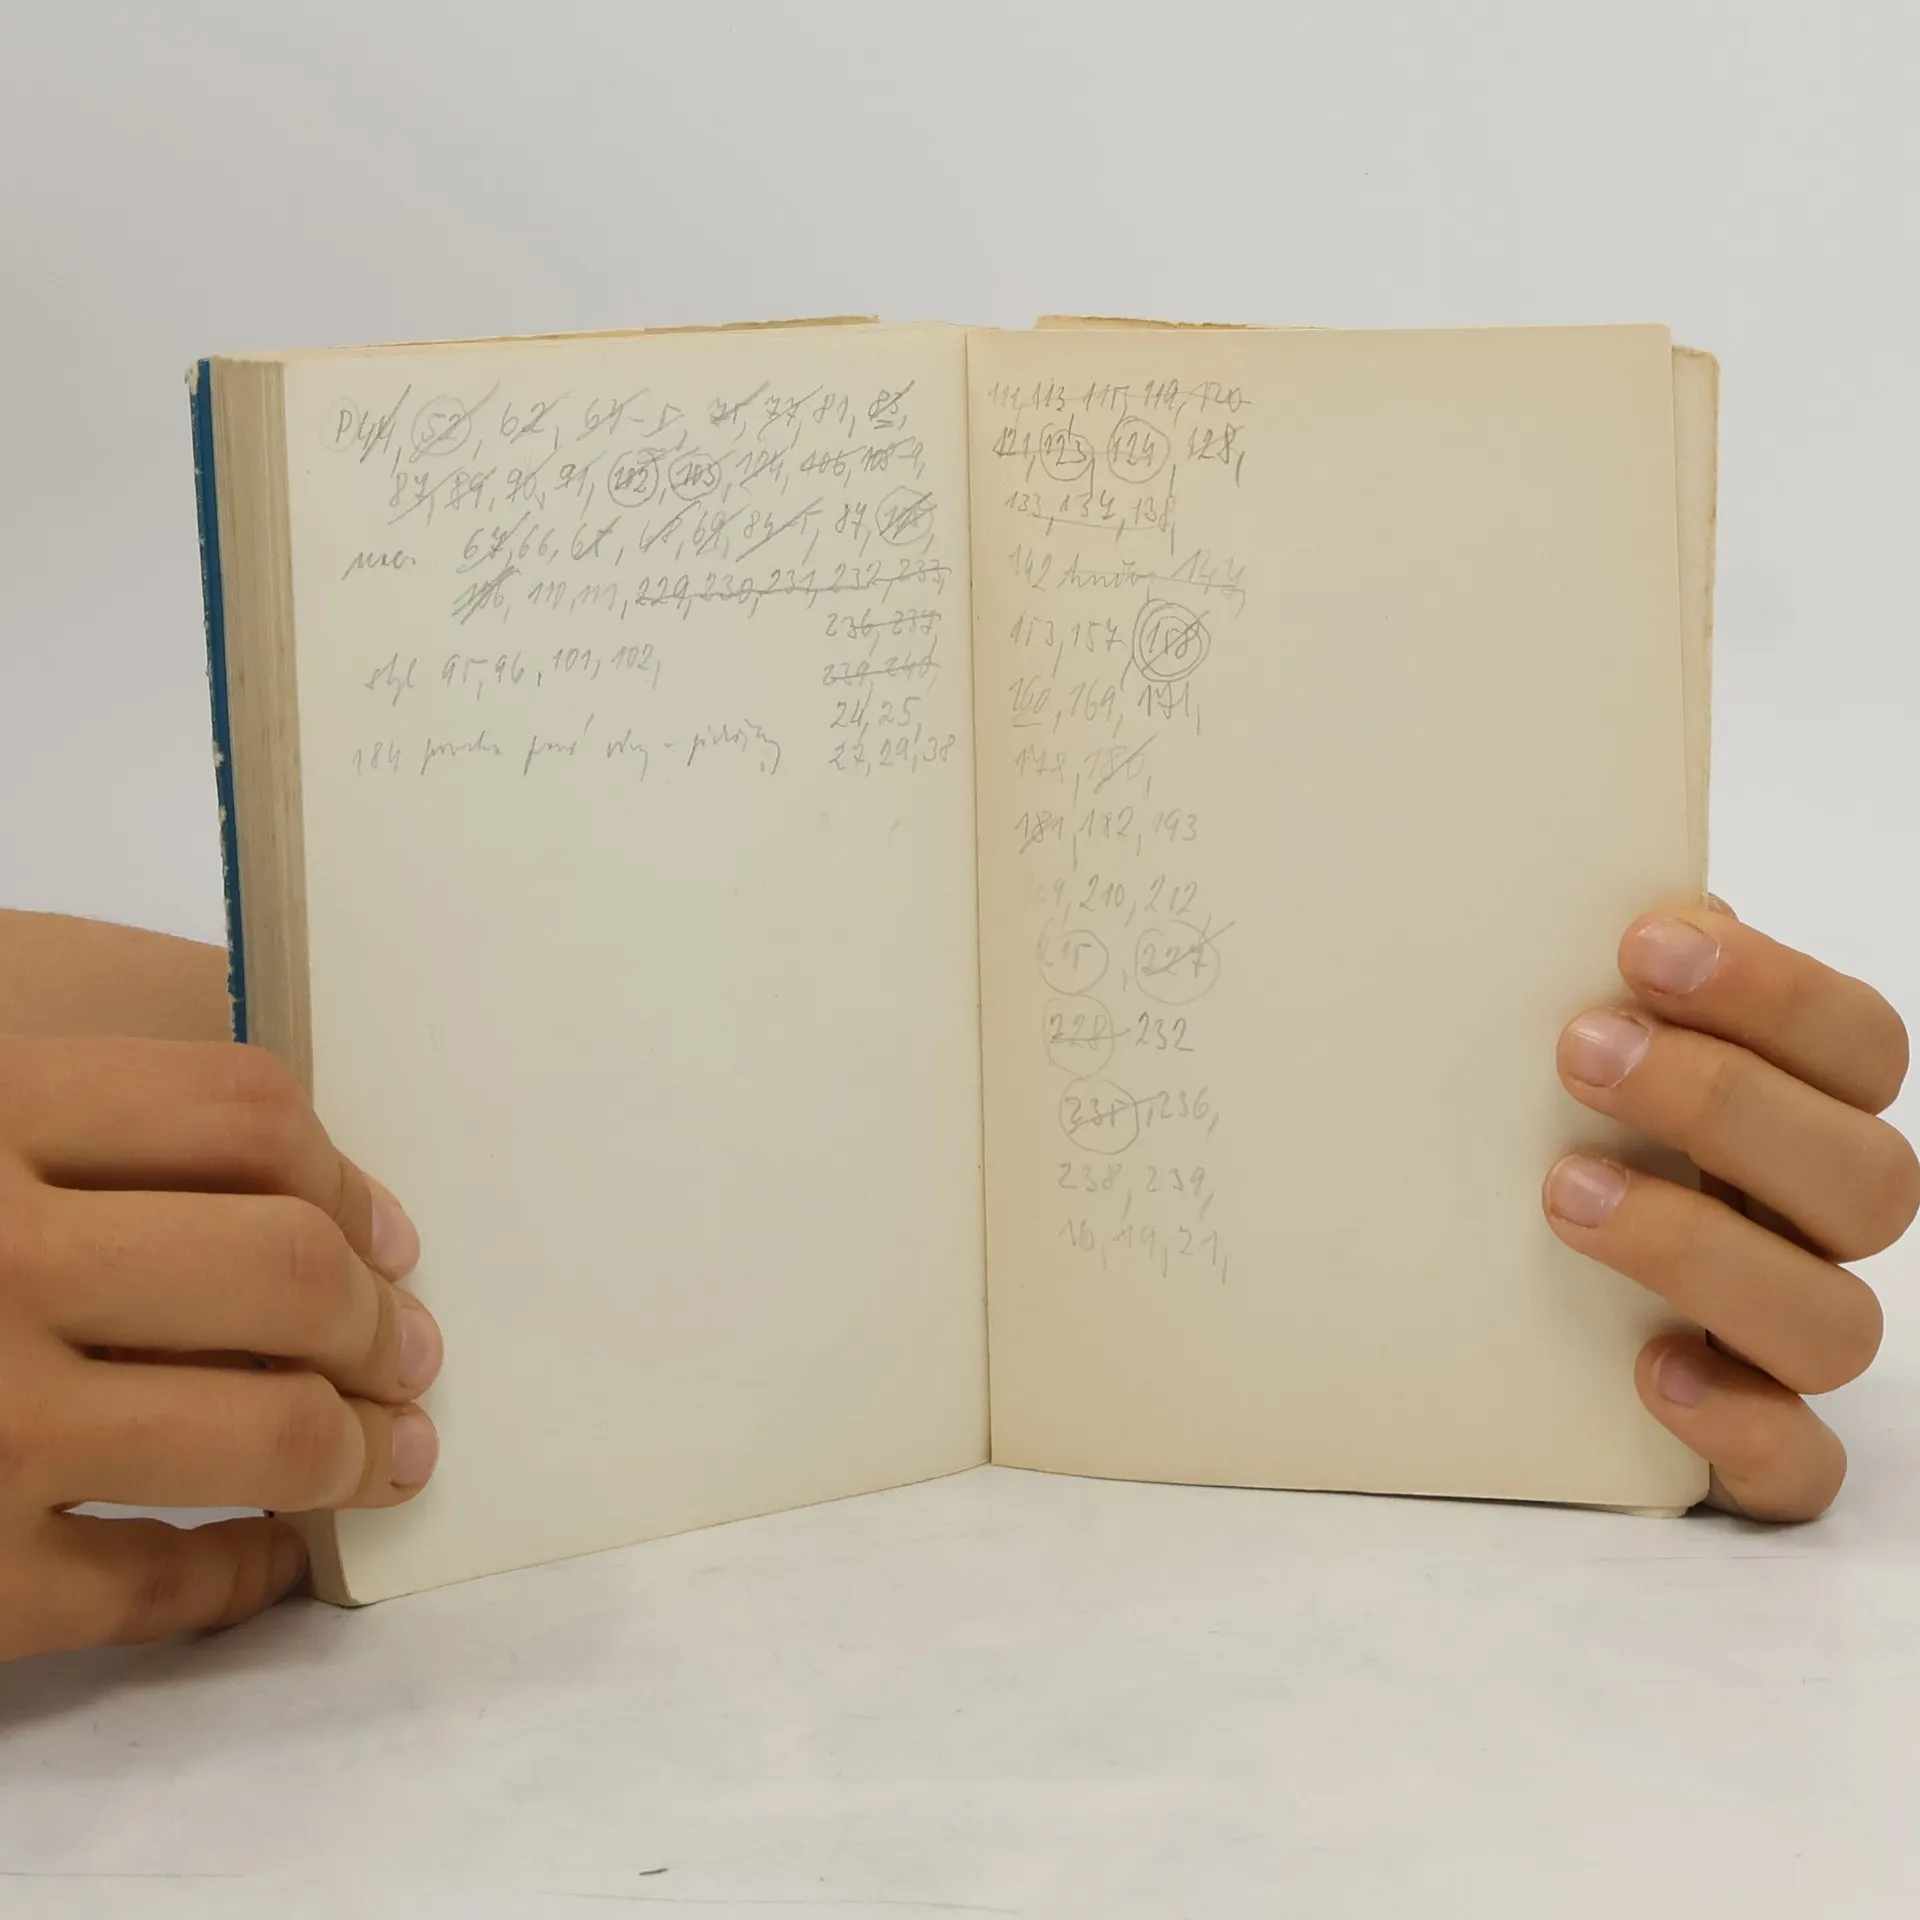 P44, 52, 62, 64-5, 75, 77, 81, 83,
87, 89, 90, 91, 102, 103, 104, 106, 108-9,
67, 66, 68, 69, 84-5, 87,
106, 110, 111, 229, 230, 231, 232, 233,
236, 237,
styl 95, 96, 101, 102,
239, 240,
24, 25,
184
27, 29, 38
111, 113, 115, 119, 120
121, 123, 124, 128,
133, 134, 138,
142 144,
153, 157, 158
160, 169, 171,
178, 180,
181, 182, 193
209, 210, 212,
215, 227
228 232
235, 236,
238, 239,
16, 19, 21,